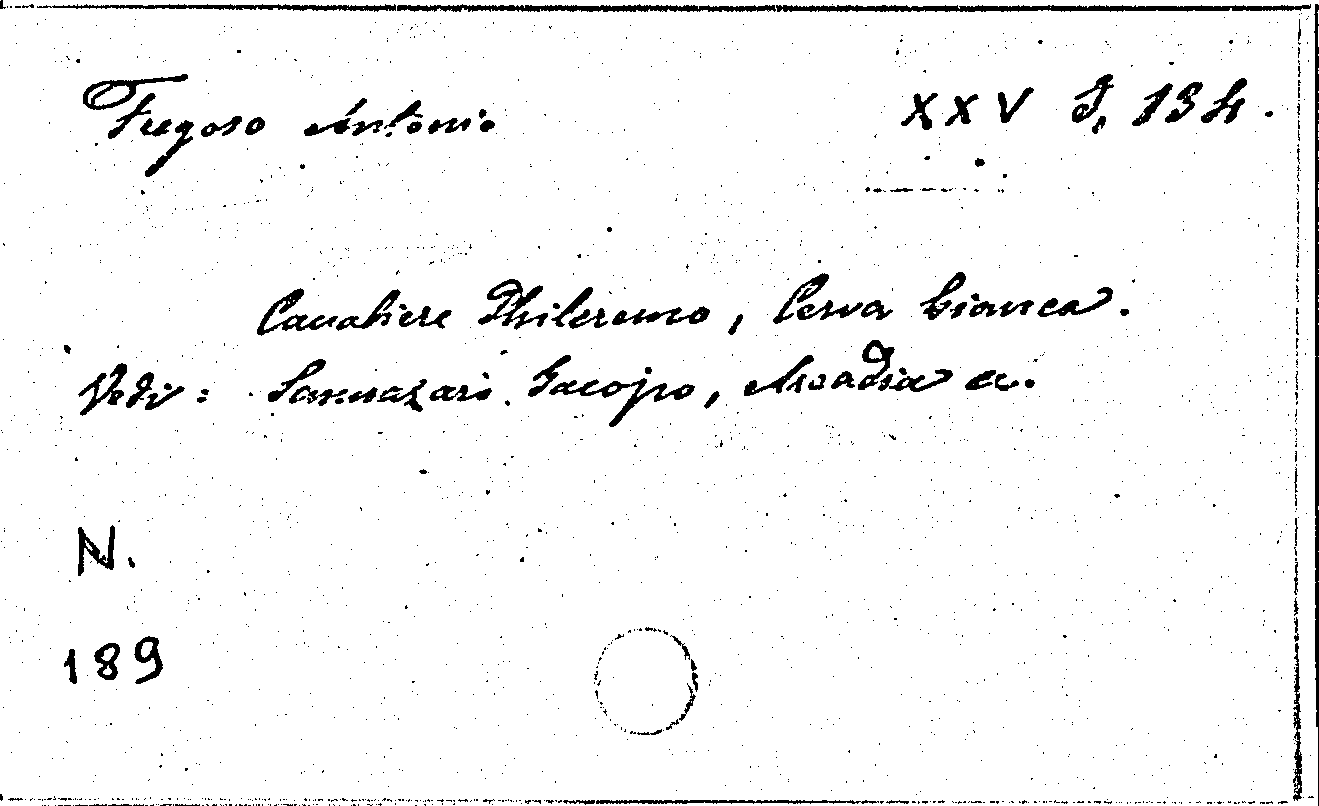 Fregoso Antonio XXV J, 134.
Cavaliere Phileremo, Cerva bianca.
Vedi: Sannazaro Jacopo, Arcadia ec.
N.
189